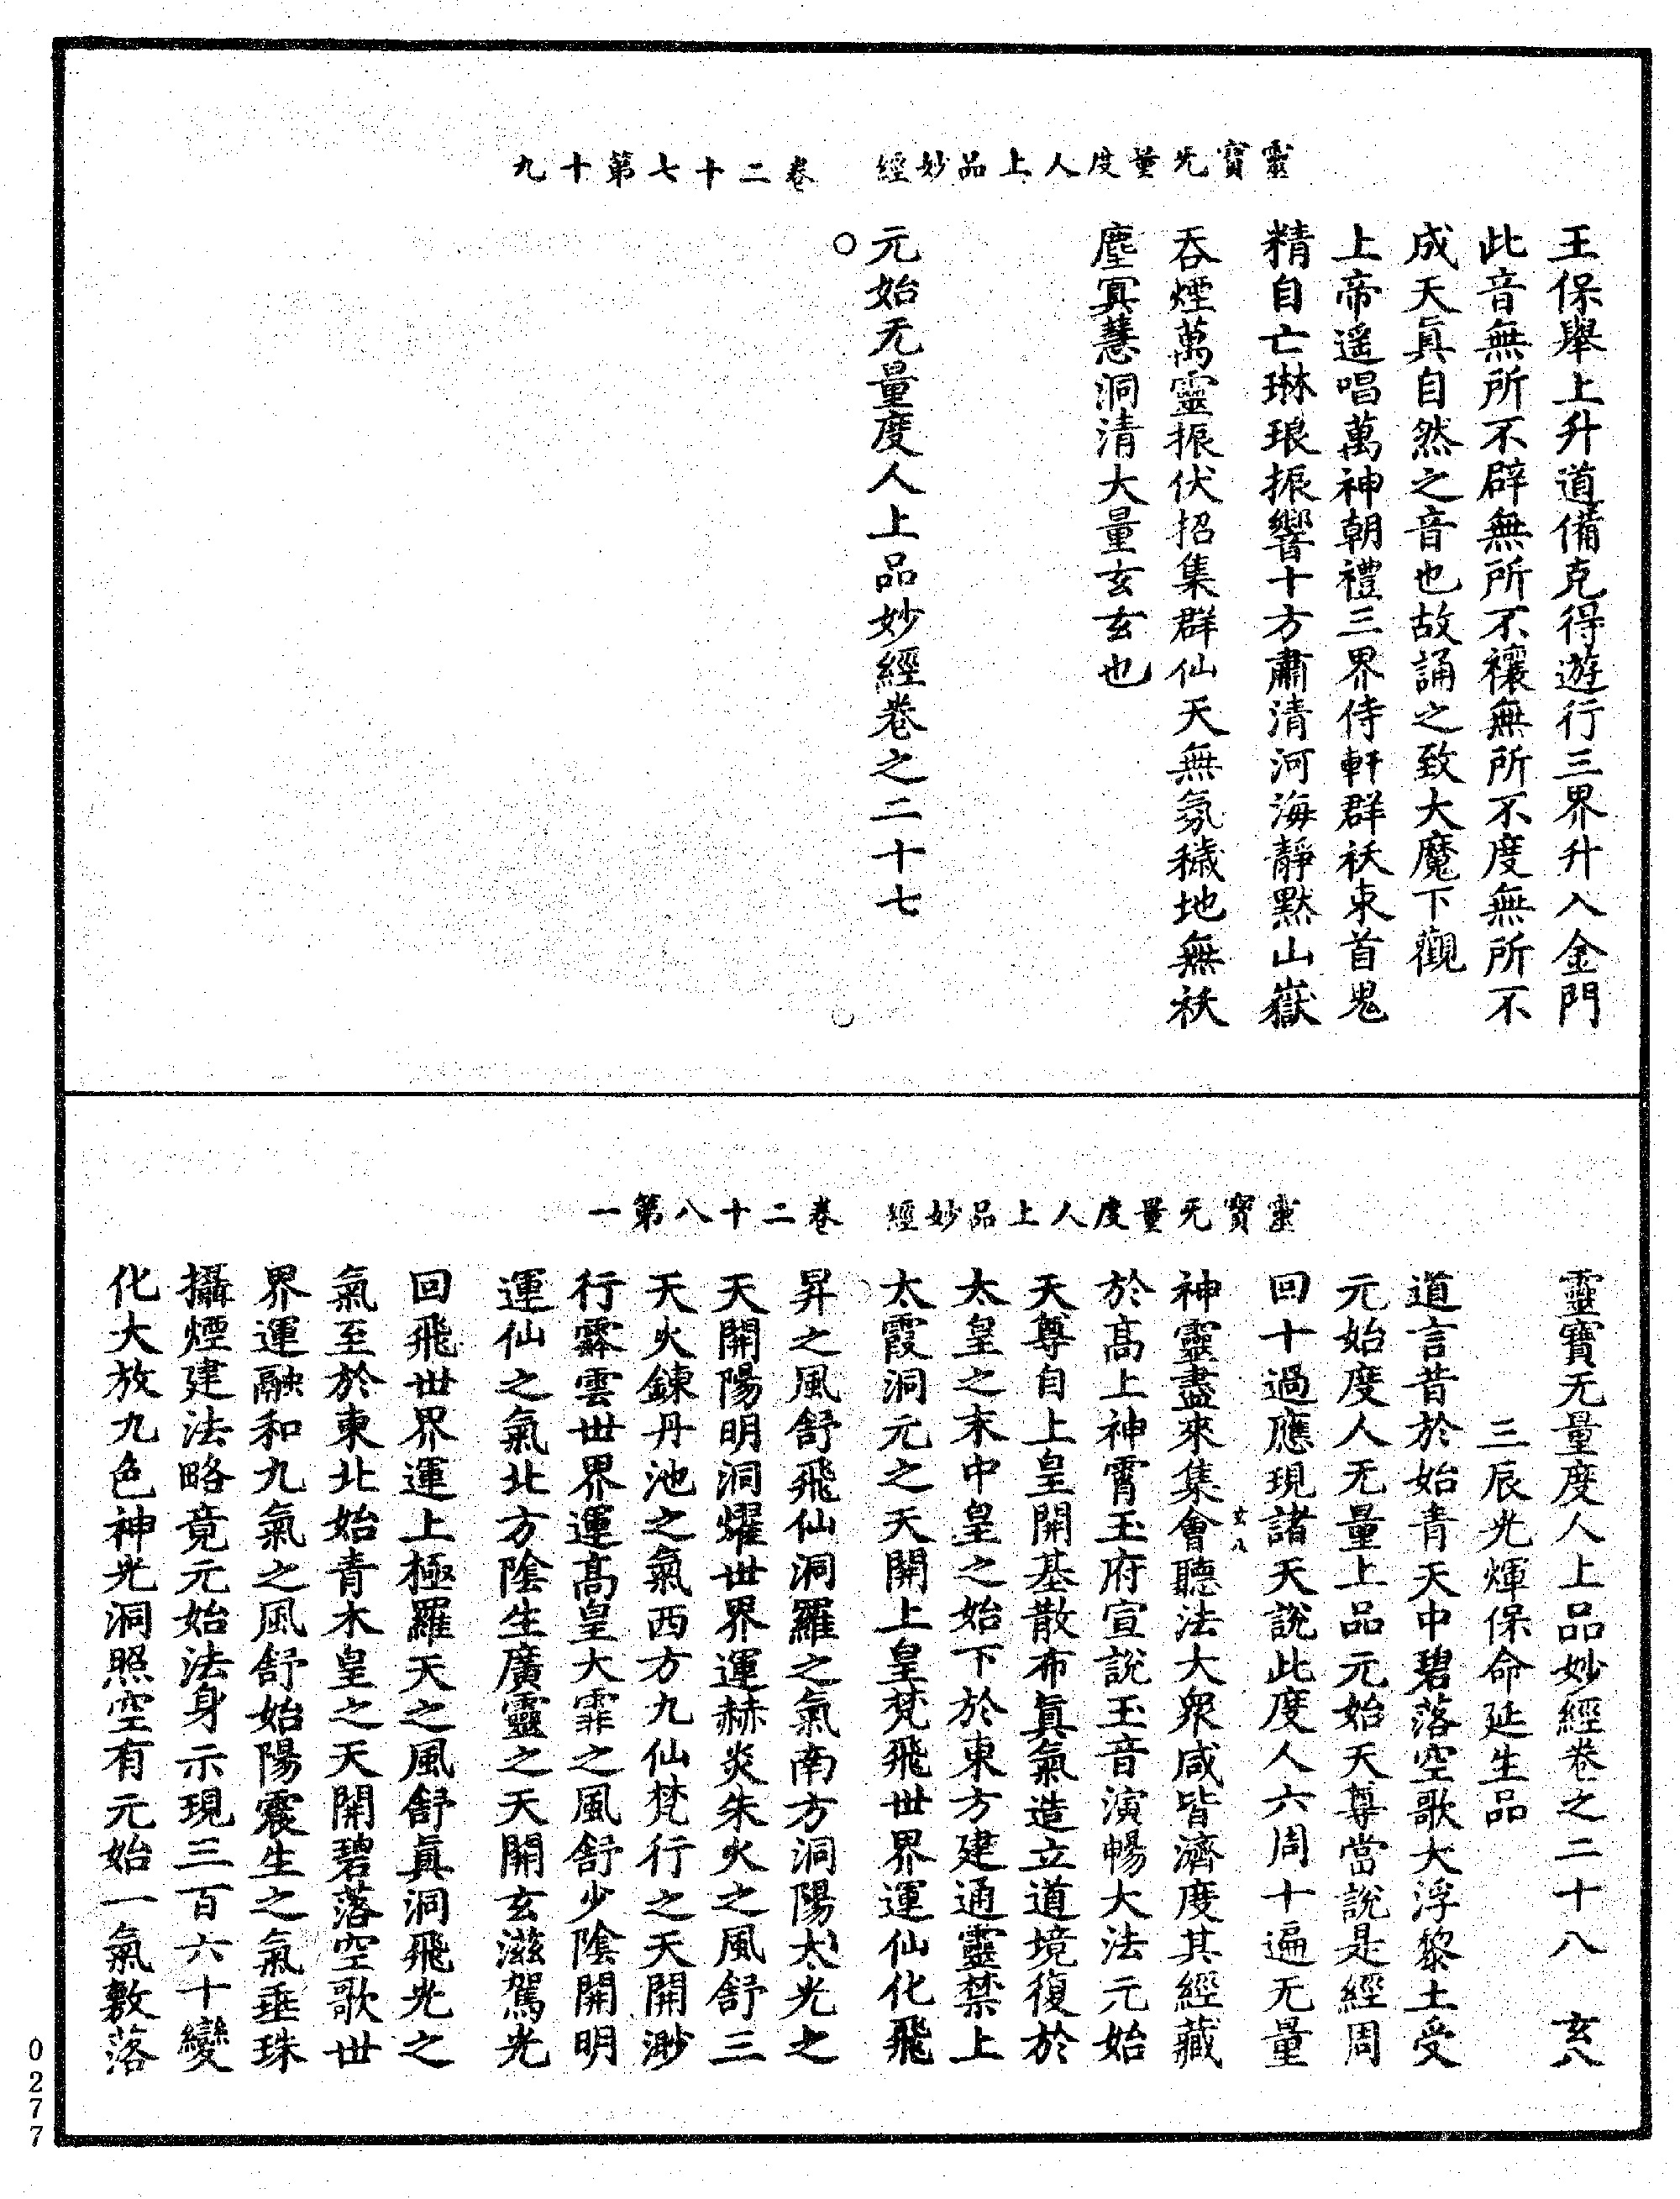 靈寶无量度人上品妙經　卷二十七第十九
王保舉上升道備克得遊行三界升入金門
此音無所不辟無所不禳無所不度無所不
成天眞自然之音也故誦之致大魔下觀
上帝遥唱萬神朝禮三界侍軒群祅束首鬼
精自亡琳琅振響十方肅清河海靜默山嶽
吞煙萬靈振伏招集群仙天無氛穢地無祅
塵冥慧洞清大量玄玄也
元始无量度人上品妙經卷之二十七
○
靈寶无量度人上品妙經　卷二十八第一
靈寶无量度人上品妙經卷之二十八　玄八
三辰光煇保命延生品
道言昔於始青天中碧落空歌大浮黎土受
元始度人无量上品元始天尊當說是經周
回十過應現諸天說此度人六周十遍无量
玄八
神靈盡來集會聽法大衆咸皆濟度其經藏
於高上神霄玉府宣說玉音演暢大法元始
天尊自上皇開基散布眞氣造立道境復於
太皇之末中皇之始下於東方建通靈禁上
太霞洞元之天開上皇梵飛世界運仙化飛
昇之風舒飛仙洞羅之氣南方洞陽太光之
天開陽明洞燿世界運赫炎朱火之風舒三
天火鍊丹池之氣西方九仙梵行之天開渺
行霐雲世界運高皇大霏之風舒少陰開明
運仙之氣北方陰生廣靈之天開玄滋駕光
回飛世界運上極羅天之風舒眞洞飛光之
氣至於東北始青木皇之天開碧落空歌世
界運融和九氣之風舒始陽震生之氣垂珠
攝煙建法略竟元始法身示現三百六十變
化大放九色神光洞照空有元始一氣敷落
0277